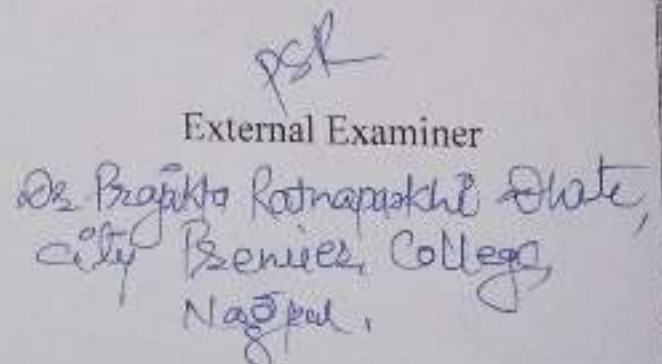 PSR
External Examiner
Dr Prajakta Ratnaparkhi Dhote,
city Premier College,
Nagpur.